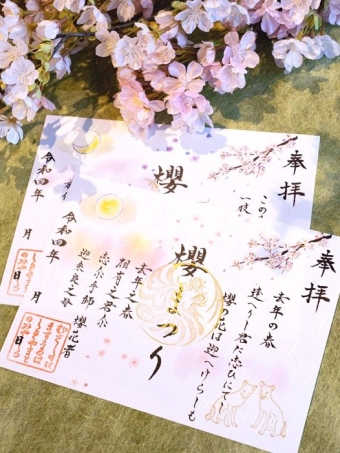 奉拝
この
一枝
櫻
令和四年
月
日
奉拝
去年の春
逢へりし君に恋ひにてし
櫻の花は迎へけらしも
櫻まつり
去年之春
相有之君尓
恋尓手師 櫻花者
迎来良之母
令和四年
月
日